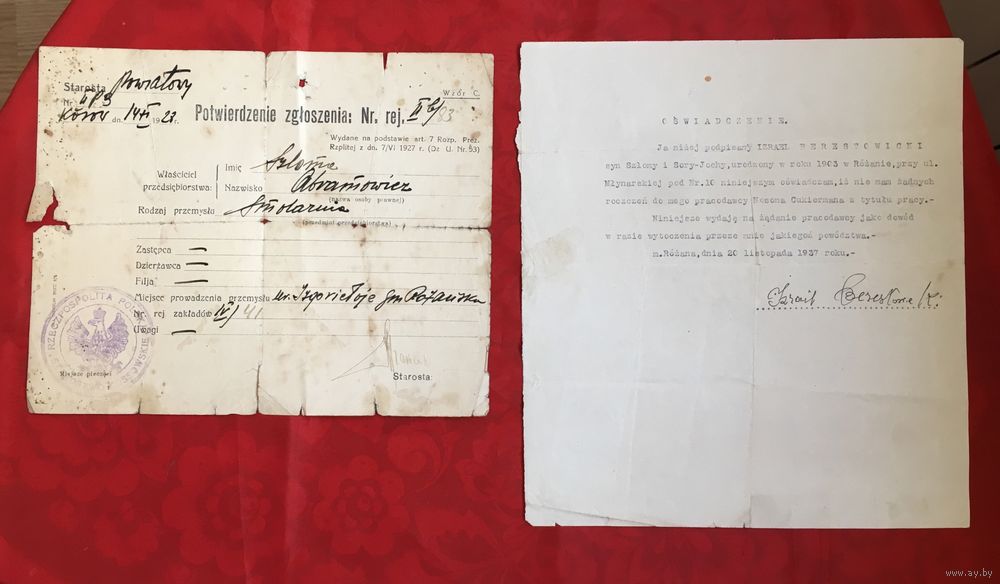 Starosta Powiatowy
Wzór C.
Nr.
Kosów dn. 14/XI 1928 r.
Potwierdzenie zgłoszenia: Nr. rej. II b/83
Wydane na podstawie art. 7 Rozp. Prez.
Rzplitej z dn. 7/VI 1927 r. (Dz U. Nr. 53)
Właściciel
przedsiębiorstwa:
Imię Szloma
Nazwisko Abramowicz
(nazwa osoby prawnej)
Rodzaj przemysłu Smolarnia
(przedmiot przedsiębiorstwa)
Zastępca —
Dzierżawca —
Filja —
Miejsce prowadzenia przemysłu
Nr. rej zakładów IV/41
Uwagi —
RZECZPOSPOLITA
Miejsce pieczęci
Starosta:
OŚWIADCZENIE.
Ja niżej podpisany IZRAEL BERESTOWICKI
syn Szlomy i Sory-Jochy, urodzony w roku 1903 w Różanie, przy ul.
Młynarskiej pod Nr.10 niniejszym oświadczam, iż nie mam żadnych
roszczeń do mego pracodawcy Nosona Cukiermana z tytułu pracy.-
Niniejsze wydaję na żądanie pracodawcy jako dowód
w razie wytoczenia przeze mnie jakiegoś powództwa.-
m.Różana, dnia 20 listopada 1937 roku.-
www.ay.by